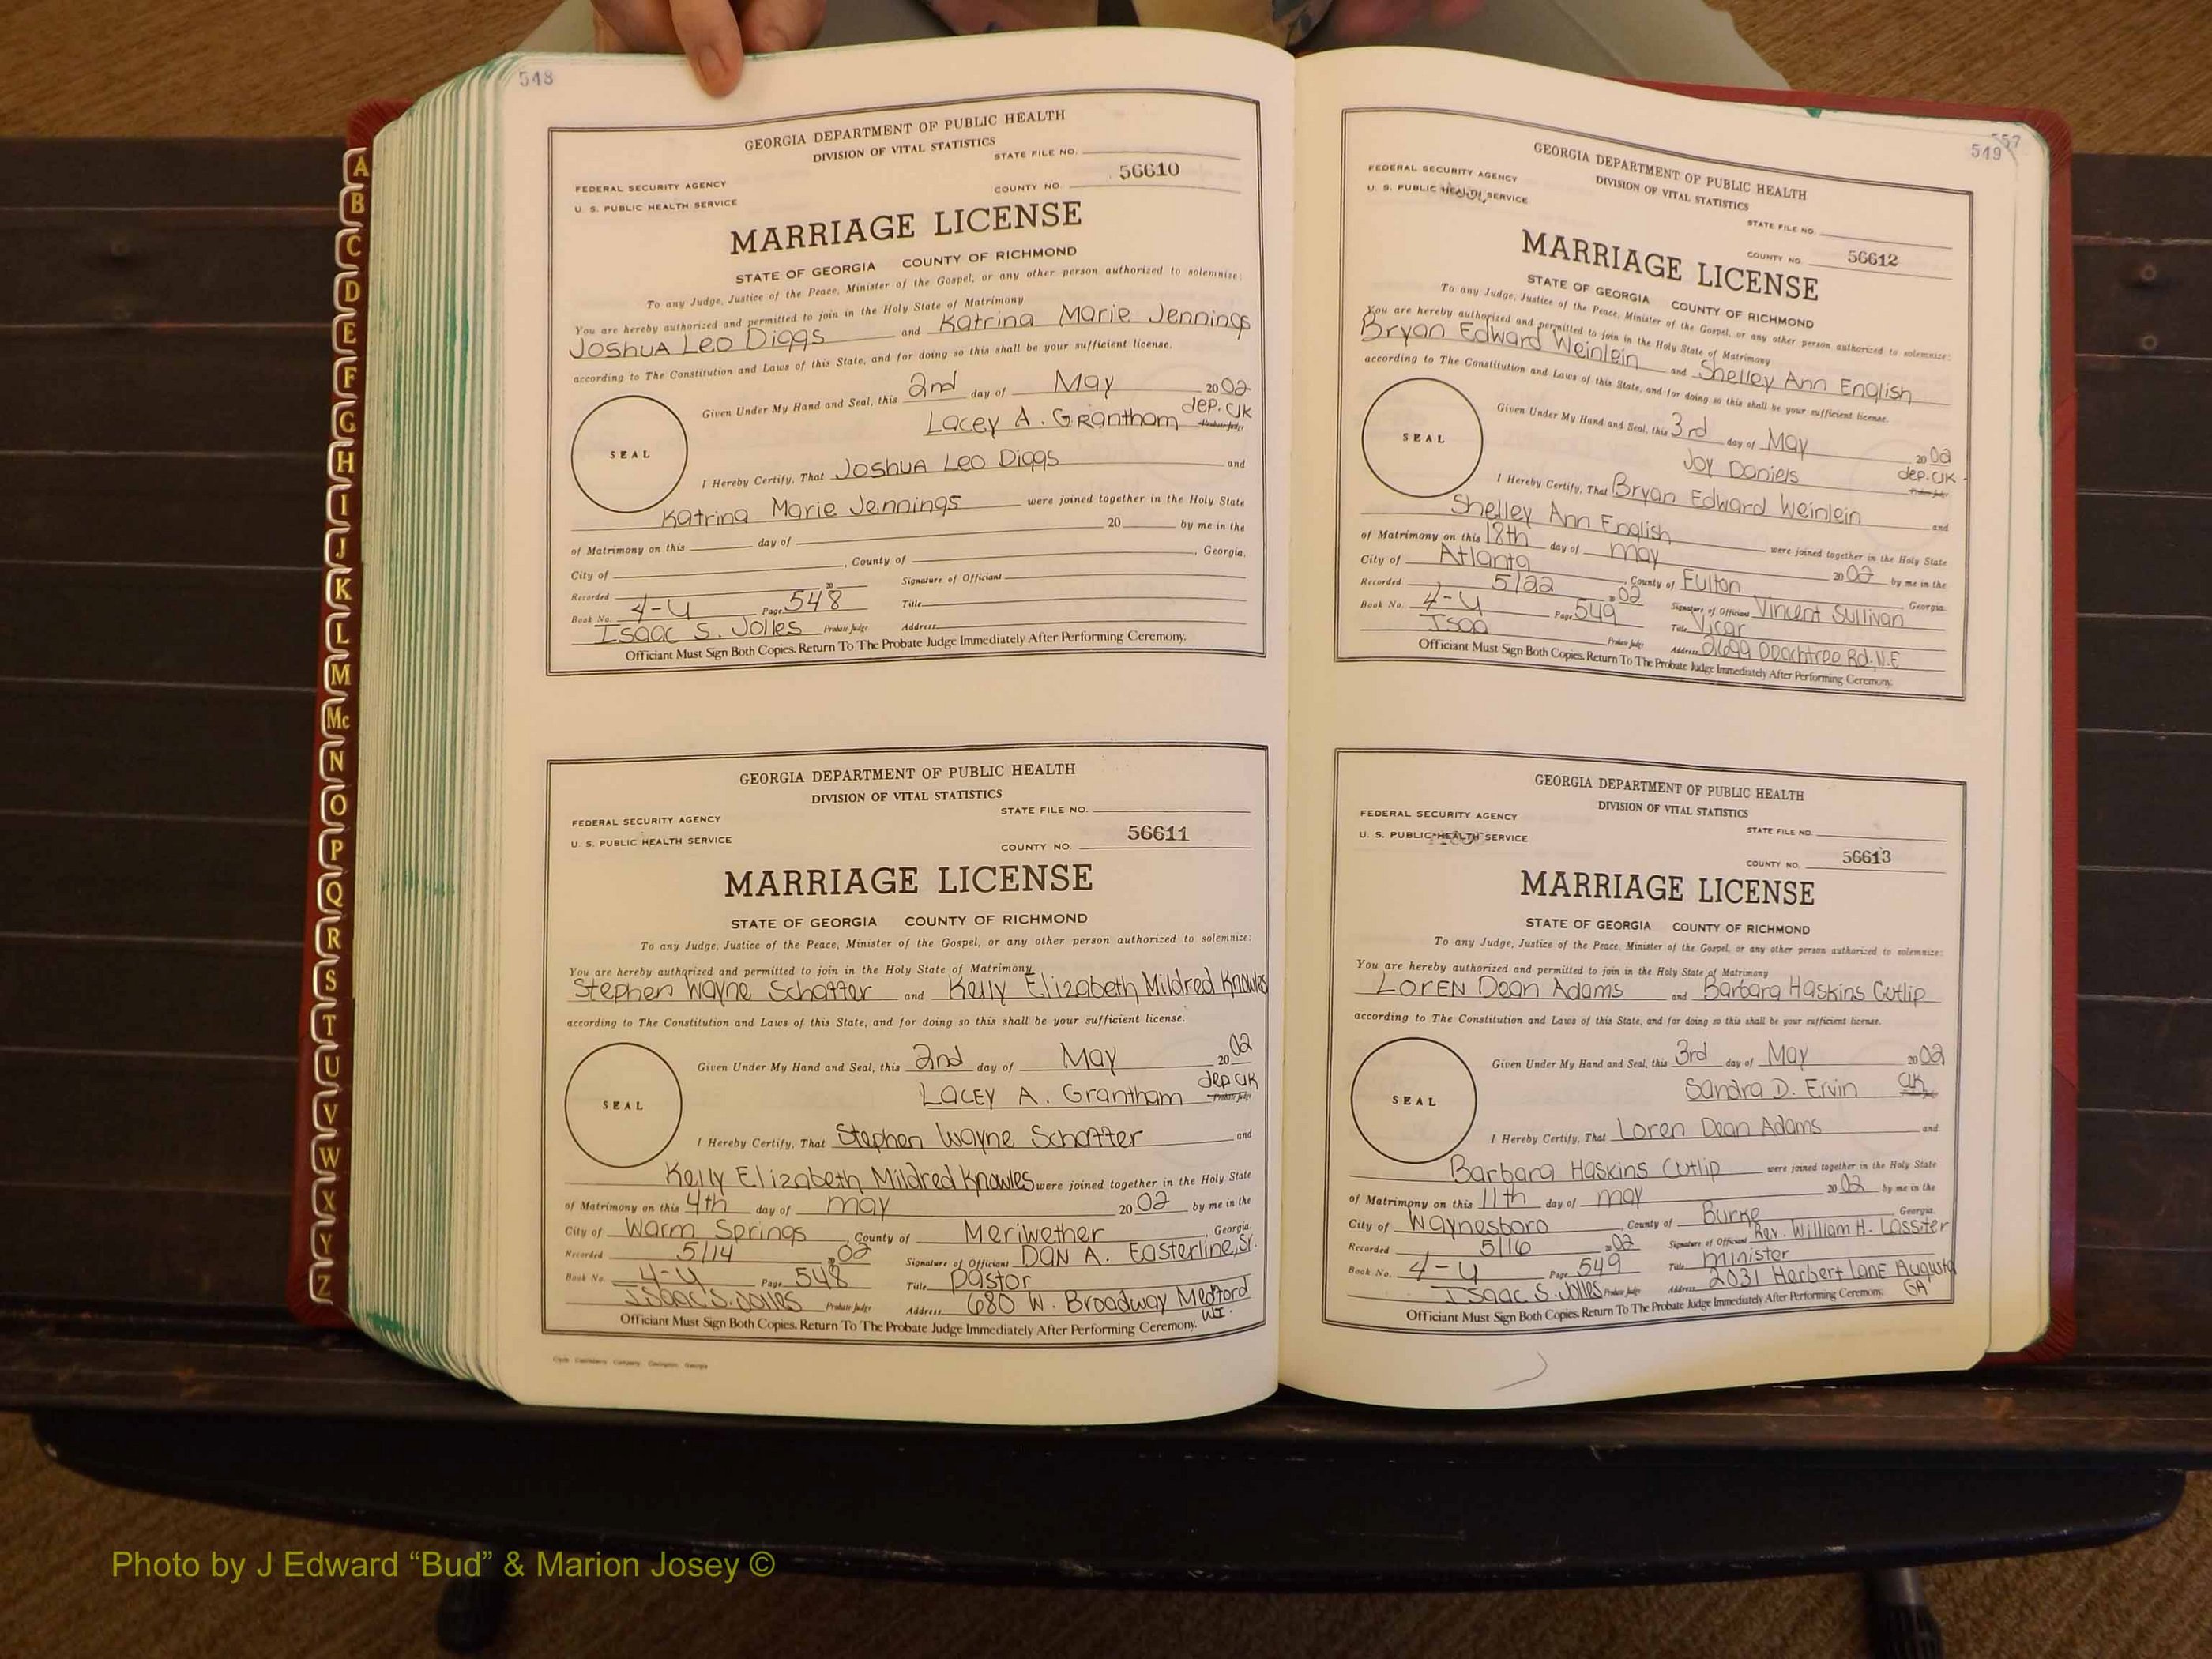 548
GEORGIA DEPARTMENT OF PUBLIC HEALTH
DIVISION OF VITAL STATISTICS
STATE FILE NO.
FEDERAL SECURITY AGENCY
U. S. PUBLIC HEALTH SERVICE
COUNTY NO. 56610
MARRIAGE LICENSE
STATE OF GEORGIA COUNTY OF RICHMOND
To any Judge, Justice of the Peace, Minister of the Gospel, or any other person authorized to solemnize:
You are hereby authorized and permitted to join in the Holy State of Matrimony
Joshua Leo Diggs and Katrina Marie Jennings
according to The Constitution and Laws of this State, and for doing so this shall be your sufficient license.
Given Under My Hand and Seal, this 2nd day of May 2002
SEAL
Lacey A. Grantham dep. Clk Probate Judge
I Hereby Certify, That Joshua Leo Diggs and
Katrina Marie Jennings were joined together in the Holy State
of Matrimony on this day of 20 by me in the
City of , County of , Georgia.
Recorded 20 Signature of Officiant
Book No. 4-U Page 548 Title
Isaac S. Jolles Probate Judge Address
Officiant Must Sign Both Copies. Return To The Probate Judge Immediately After Performing Ceremony.
GEORGIA DEPARTMENT OF PUBLIC HEALTH
DIVISION OF VITAL STATISTICS
STATE FILE NO.
FEDERAL SECURITY AGENCY
U. S. PUBLIC HEALTH SERVICE
COUNTY NO. 56611
MARRIAGE LICENSE
STATE OF GEORGIA COUNTY OF RICHMOND
To any Judge, Justice of the Peace, Minister of the Gospel, or any other person authorized to solemnize:
You are hereby authorized and permitted to join in the Holy State of Matrimony
Stephen Wayne Schaffer and Kelly Elizabeth Mildred Knowles
according to The Constitution and Laws of this State, and for doing so this shall be your sufficient license.
Given Under My Hand and Seal, this 2nd day of May 2002
SEAL
Lacey A. Grantham dep Clk Probate Judge
I Hereby Certify, That Stephen Wayne Schaffer and
Kelly Elizabeth Mildred Knowles were joined together in the Holy State
of Matrimony on this 4th day of may 2002 by me in the
City of Warm Springs , County of Meriwether , Georgia.
Recorded 5/14 2002 Signature of Officiant Dan A. Easterline, Sr.
Book No. 4-U Page 548 Title pastor
Isaac S. Jolles Probate Judge Address 680 W. Broadway Medford
WI.
Officiant Must Sign Both Copies. Return To The Probate Judge Immediately After Performing Ceremony.
557
549
GEORGIA DEPARTMENT OF PUBLIC HEALTH
DIVISION OF VITAL STATISTICS
FEDERAL SECURITY AGENCY
U. S. PUBLIC HEALTH SERVICE
STATE FILE NO.
COUNTY NO. 56612
MARRIAGE LICENSE
STATE OF GEORGIA COUNTY OF RICHMOND
To any Judge, Justice of the Peace, Minister of the Gospel, or any other person authorized to solemnize:
You are hereby authorized and permitted to join in the Holy State of Matrimony
Bryan Edward Weinlein and Shelley Ann English
according to The Constitution and Laws of this State, and for doing so this shall be your sufficient license.
Given Under My Hand and Seal, this 3rd day of May 2002
SEAL
Joy Daniels dep. Clk Probate Judge
I Hereby Certify, That Bryan Edward Weinlein and
Shelley Ann English were joined together in the Holy State
of Matrimony on this 18th day of may 2002 by me in the
City of Atlanta , County of Fulton Georgia.
Recorded 5/22 2002 Signature of Officiant Vincent Sullivan
Book No. 4-U Page 549 Title Vicar
Isaa Probate Judge Address 2699 Peachtree Rd. N.E
Officiant Must Sign Both Copies. Return To The Probate Judge Immediately After Performing Ceremony.
GEORGIA DEPARTMENT OF PUBLIC HEALTH
DIVISION OF VITAL STATISTICS
FEDERAL SECURITY AGENCY
U. S. PUBLIC HEALTH SERVICE
STATE FILE NO.
COUNTY NO. 56613
MARRIAGE LICENSE
STATE OF GEORGIA COUNTY OF RICHMOND
To any Judge, Justice of the Peace, Minister of the Gospel, or any other person authorized to solemnize:
You are hereby authorized and permitted to join in the Holy State of Matrimony
Loren Dean Adams and Barbara Haskins Cutlip
according to The Constitution and Laws of this State, and for doing so this shall be your sufficient license.
Given Under My Hand and Seal, this 3rd day of May 2002
SEAL
Sandra D. Ervin Clk
I Hereby Certify, That Loren Dean Adams and
Barbara Haskins Cutlip were joined together in the Holy State
of Matrimony on this 11th day of may 2002 by me in the
City of Waynesboro , County of Burke Georgia.
Recorded 5/16 2002 Signature of Officiant Rev. William H. Lassiter
Book No. 4-U Page 549 Title minister
Isaac S. Jolles Probate Judge Address 2031 Herbert Lane Augusta
GA
Officiant Must Sign Both Copies. Return To The Probate Judge Immediately After Performing Ceremony.
A
B
C
D
E
F
G
H
I
J
K
L
M
Mc
N
O
P
Q
R
S
T
U
V
W
X
Y
Z
Photo by J Edward “Bud” & Marion Josey ©